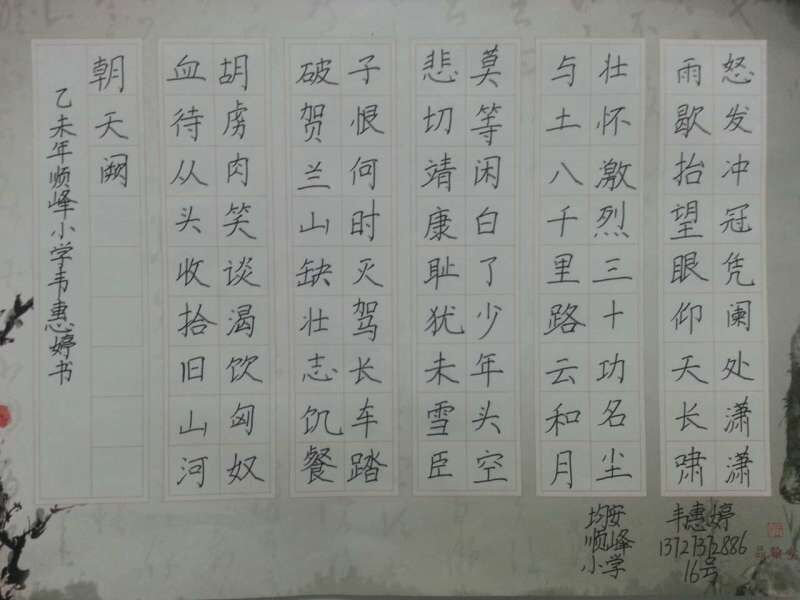 怒发冲冠凭阑处潇潇
雨歇抬望眼仰天长啸
壮怀激烈三十功名尘
与土八千里路云和月
莫等闲白了少年头空
悲切靖康耻犹未雪臣
子恨何时灭驾长车踏
破贺兰山缺壮志饥餐
胡虏肉笑谈渴饮匈奴
血待从头收拾旧山河
朝天阙
乙未年顺峰小学韦惠婷书
均安
顺峰
小学
韦惠婷
13727372886
16号